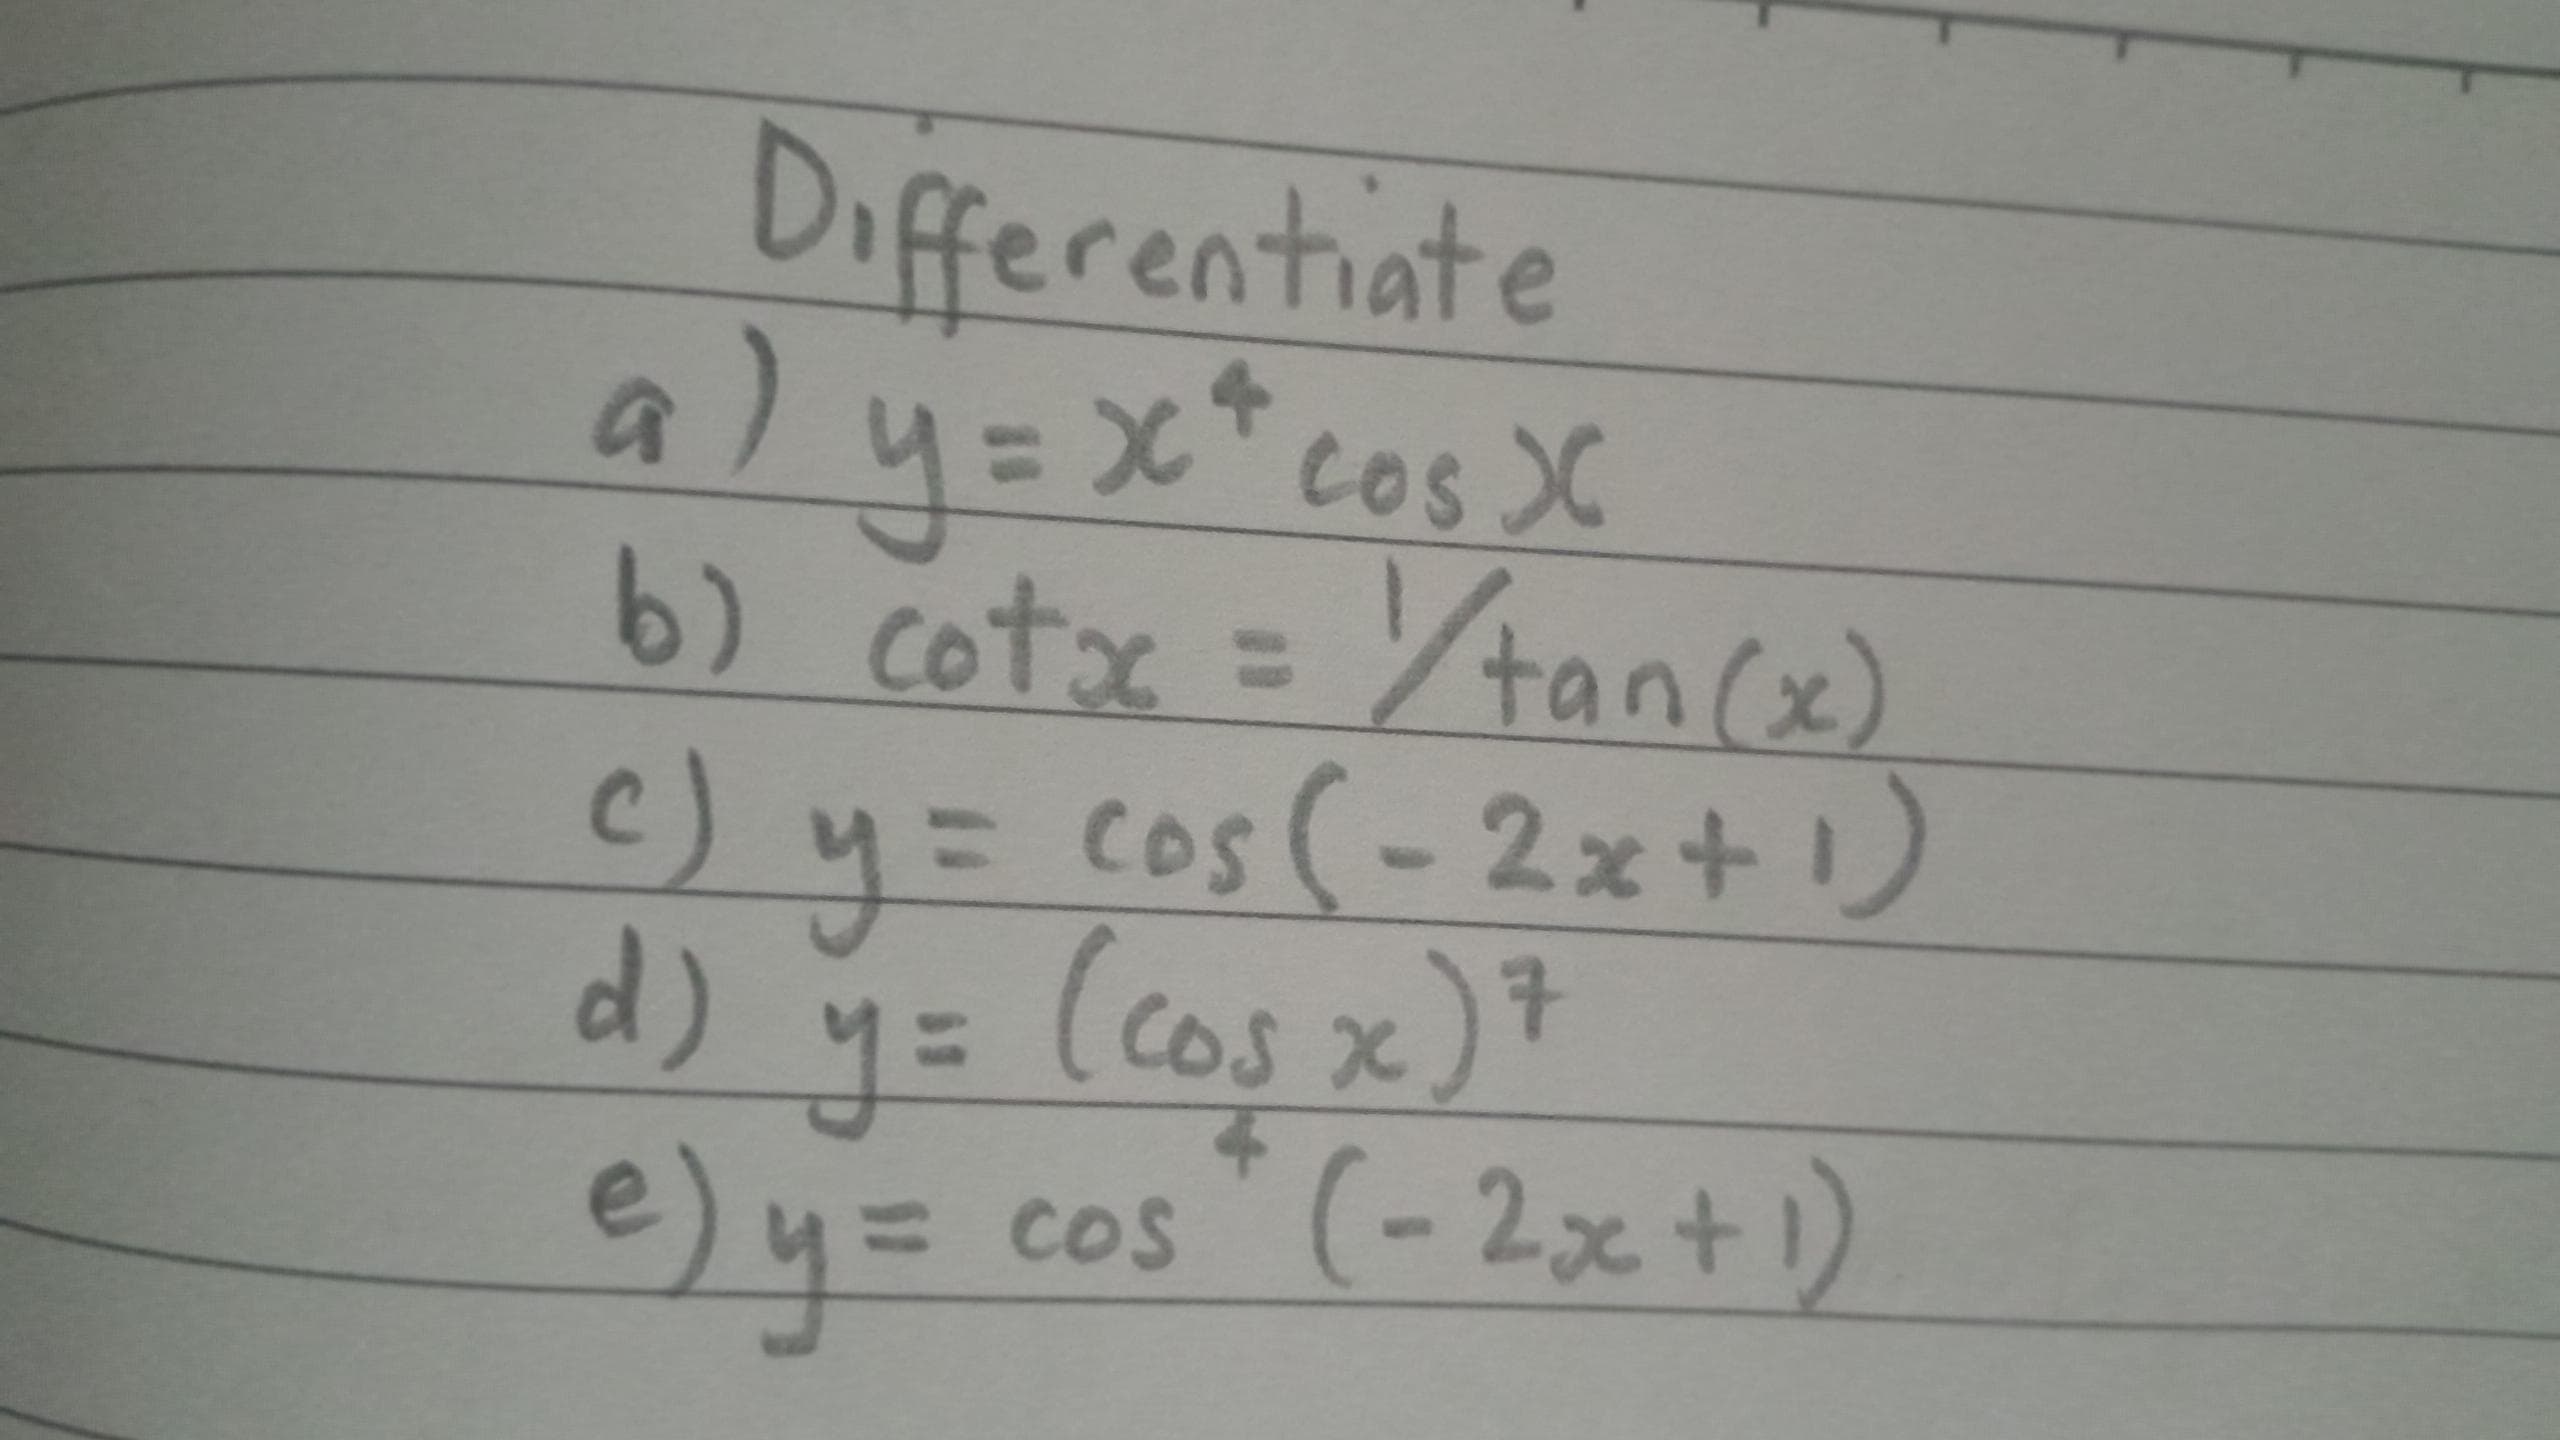 Differentiate
a) y = x⁴ cos x
b) cot x = 1/tan(x)
c) y = cos(-2x+1)
d) y = (cos x)⁷
e) y = cos⁴ (-2x+1)